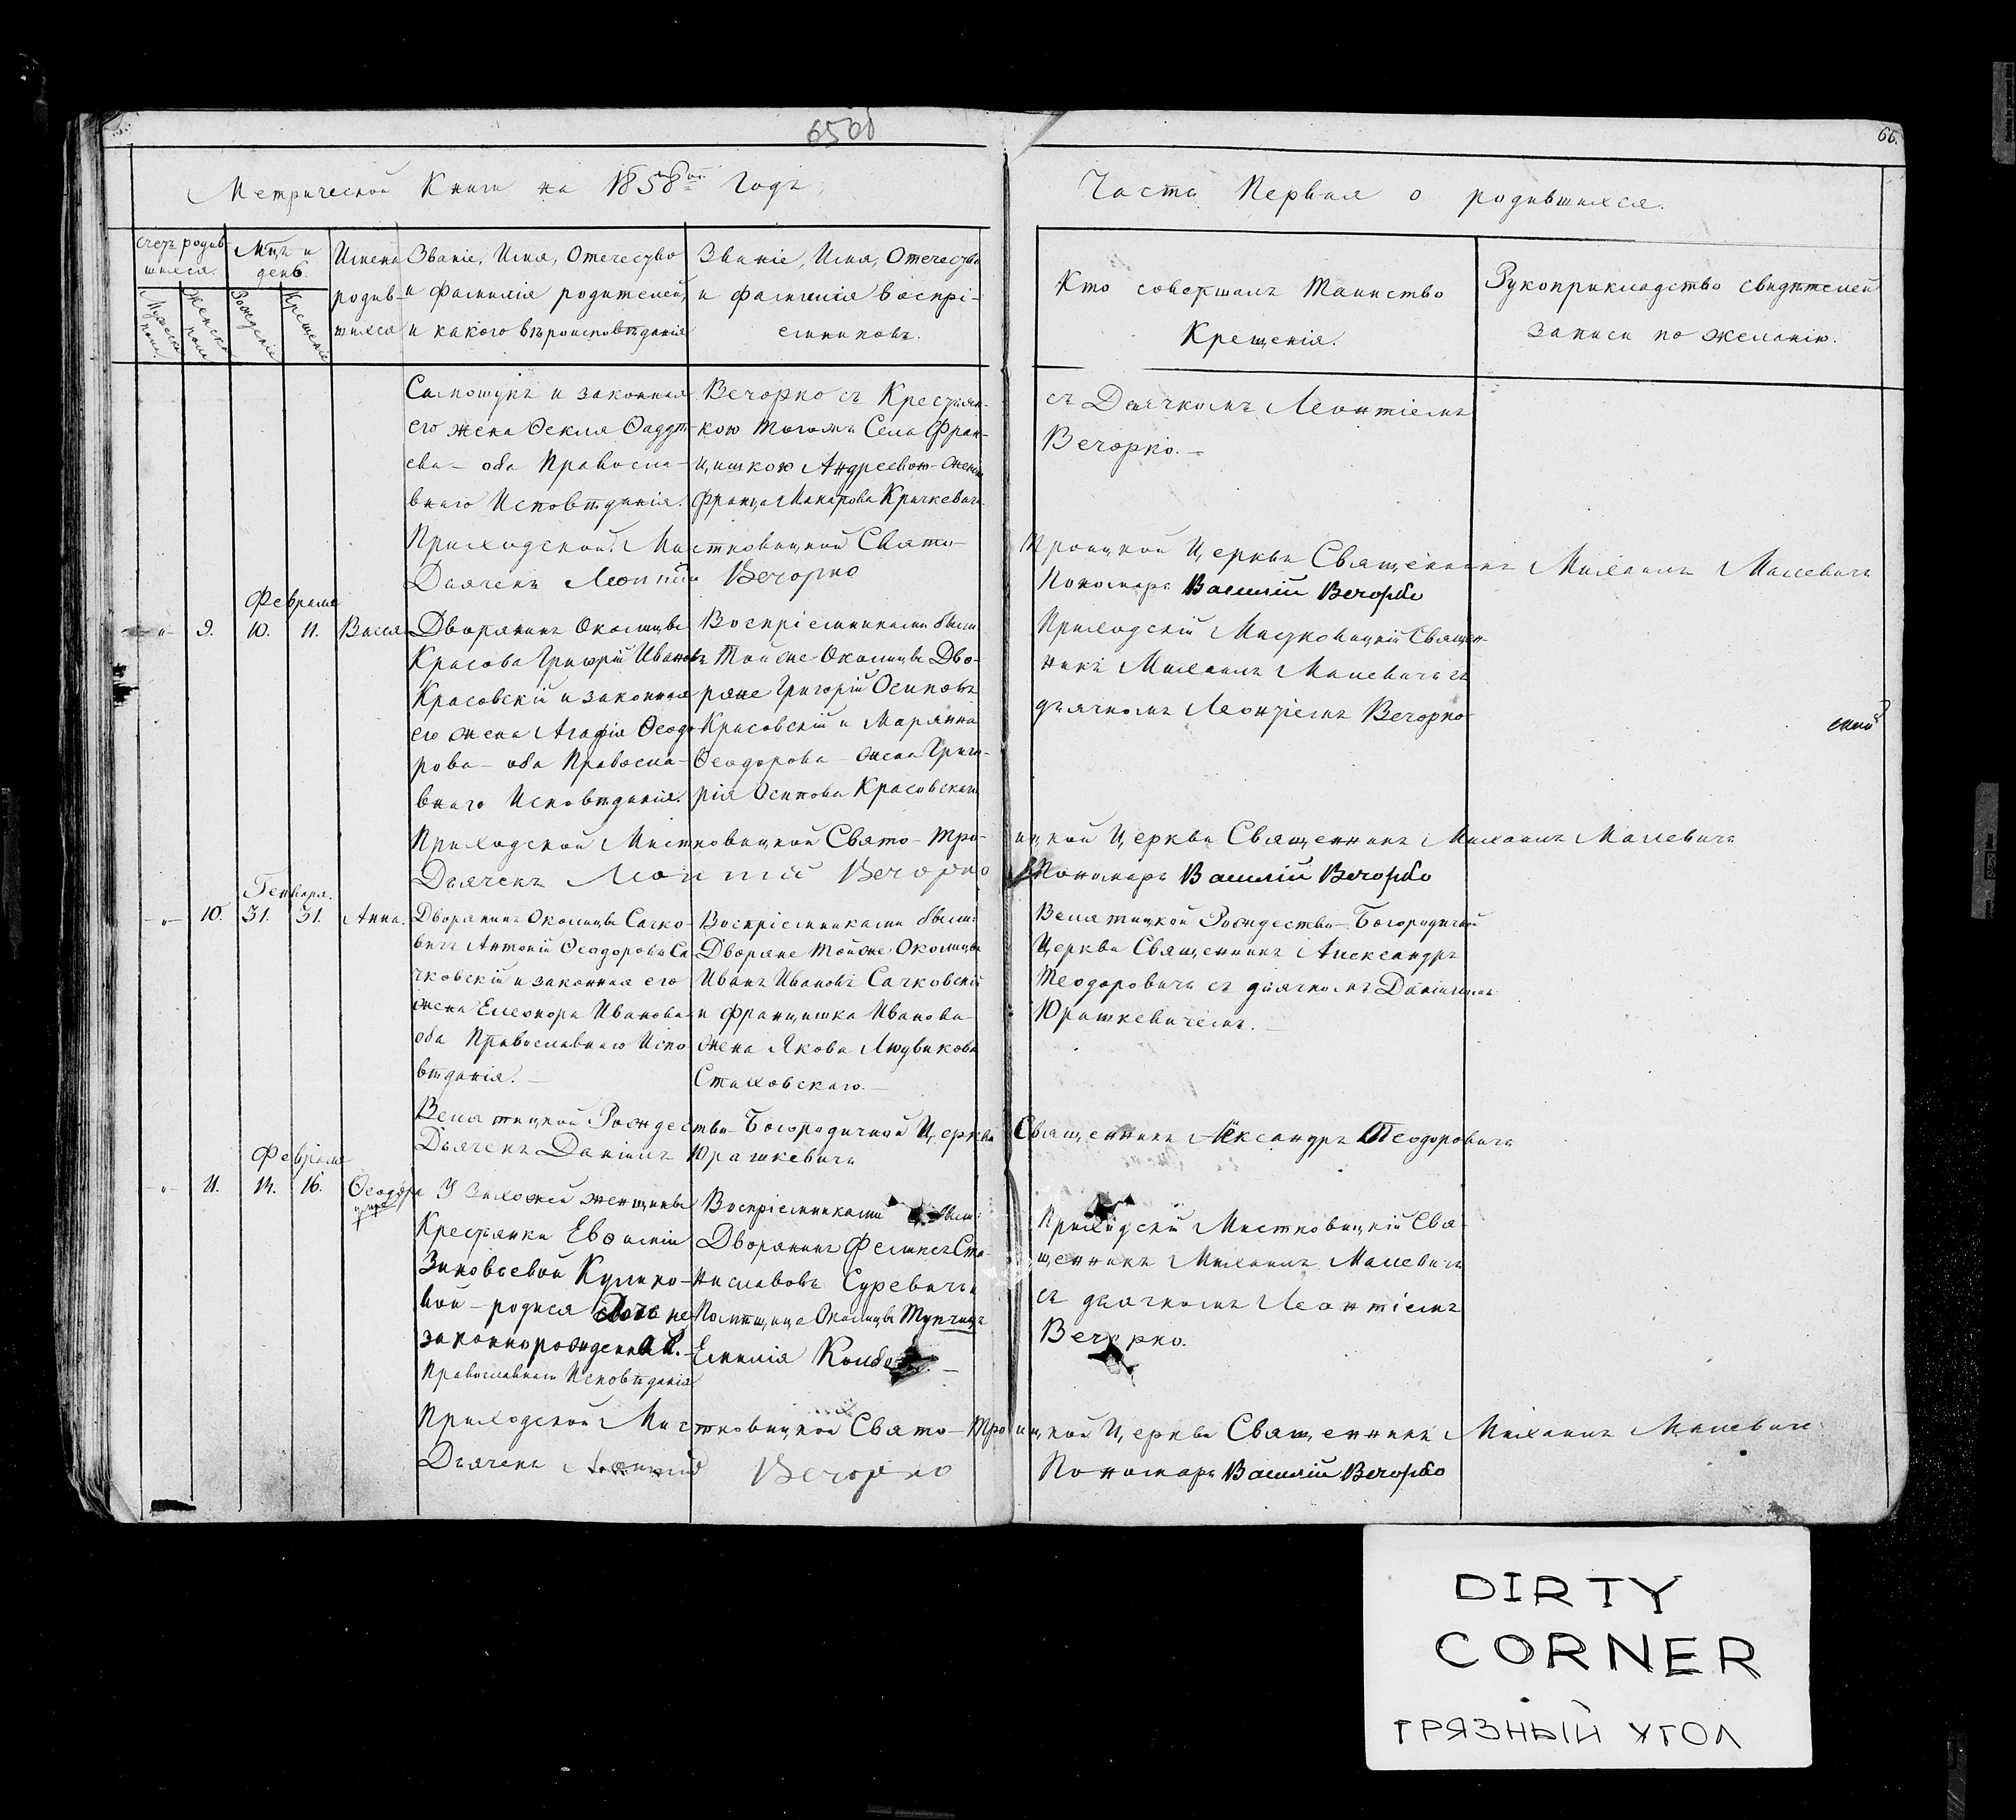 65об
66.
Метрической Книги на 1858ой Годъ,
Часть Первая о родившихся.
счетъ родив-
шихся.
Мужеска
пола
Женска
пола
Мцъ и
день.
Рожденіе
Крещеніе
Имена
родив-
шихся
Званіе, Имя, Отечество
и Фамилія родителей,
и какого вѣроисповѣданія
Званіе, Имя, Отечество
и фамилія воспрі-
емниковъ.
Кто совершалъ Таинство
Крещенія.
Рукоприкладство свидѣтелей
записи по желанію.
и законная
его жена Ѳекла Ѳаддѣ-
ева - оба Правосла-
внаго Исповѣданія.
Вечорко съ Крестьян-
кою тогожъ Села Фран-
цишкою Андреевою - женою
Франца Макарова Кричкевича
съ Дьячкомъ Леонтіемъ
Вечорко. -
Приходской Мистковицкой Свято-
Троицкой Церкви Священникъ Михаилъ Малевичъ
Дьячекъ Леонтій Вечорко
Пономарь Василій Вечорко
Февраля
9. 10. 11.
Дворянинъ Околицы
Красова Григорій Ивановъ
Красовскій и законная
его жена Агафія Ѳеодо-
рова - оба Правосла-
внаго Исповѣданія.
Воспріемниками были
Тойже Околицы Дво-
ряне Григорій Осиповъ
Красовскій и Марянна
Ѳеодорова - жена Григо-
рія Осипова Красовскаго
Приходскій Мистковицкій Священ-
никъ Михаилъ Малевичъ съ
дьячкомъ Леонтіемъ Вечорко
Приходской Мистковицкой Свято-Тро-
ицкой Церкви Священникъ Михаилъ Малевичъ
Дьячекъ Леонтій Вечорко
Пономарь Василій Вечорко
Генваря.
10. 31. 31. Анна.
Дворянинъ Околицы Сачко-
вичъ Антоній Ѳеодоровъ Са-
чковскій и законная его
жена Елеонора Иванова
оба Православнаго Испо-
вѣданія. -
Воспріемниками были:
Дворяне тойже Околицы
Иванъ Ивановъ Сачковскій
и Францишка Иванова -
жена Якова Людвикова
Стаховскаго. -
Велятицкой Рождество-Богородичной
Церкви Священникъ Александръ
Теодоровичъ съ дьячкомъ Даніиломъ
Юрашкевичемъ. -
Велятицкой Рождество-Богородичной Церкви
Священникъ Александръ Теодоровичъ
Дьячекъ Даніилъ Юрашкевичъ
Февраля
11. 14. 16. Ѳеодора
У Захожей женщины
Крестьянки Евѳиміи
Зиновьевой Кулико-
вой - родися Дочь не-
законнорожденная.
Православнаго Исповѣданія
Воспріемниками были:
Дворянинъ Феликсъ Ста-
ниславовъ Суревичъ и
Помѣщица Околицы Тупчицъ
Емилія
Приходскій Мистковицкій Свя-
щенникъ Михаилъ Малевичъ
съ дьячкомъ Леонтіемъ
Вечорко.
Приходской Мистковицкой Свято-Троицкой Церкви Священникъ Михаилъ Малевичъ
Дьячекъ Леонтій Вечорко
Пономарь Василій Вечорко
DIRTY
CORNER
ГРЯЗНЫЙ УГОЛ